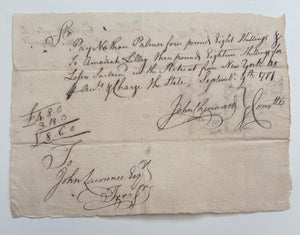 Sir
Pay Nathan Palmer four pounds Eight Shillings &
to Amariah Lilley three pounds Eighteen Shillings for
Losses Sustain'd in the Retreat from New York
& Charge the State, Septembr 9th 1777
John Chenward } Comttee
£4. 8. 0
3. 18. 0
£ 8. 6. 0
To
John Lawrence Esqr
Treasr